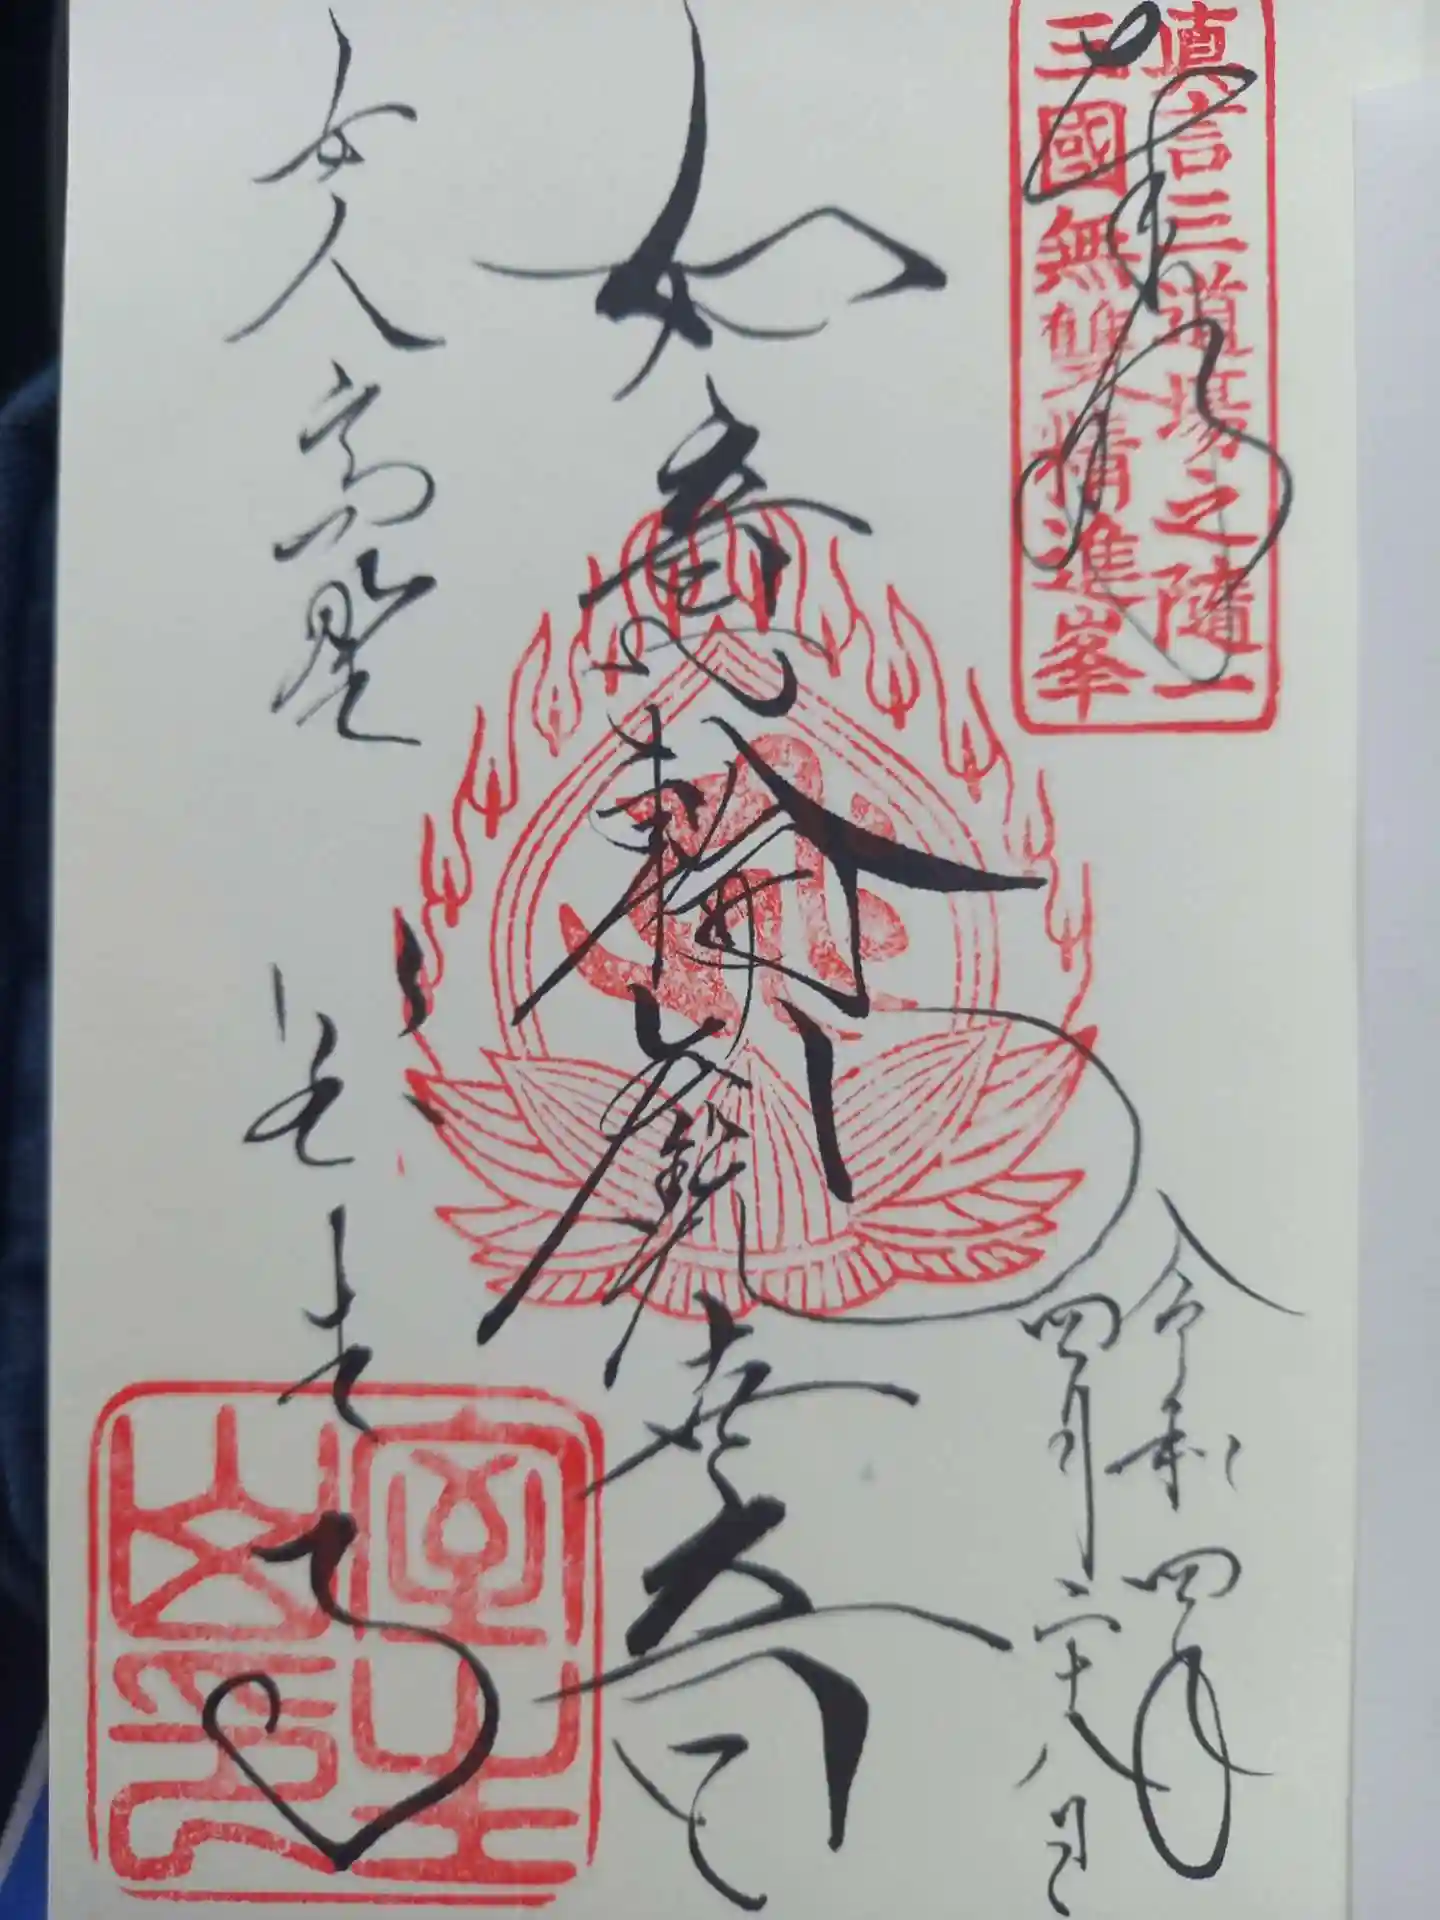 真言三道場之隨一
三國無雙精進峯
奉拝
令和四年
四月二十八日
如意輪観世音
女人高野
室生寺